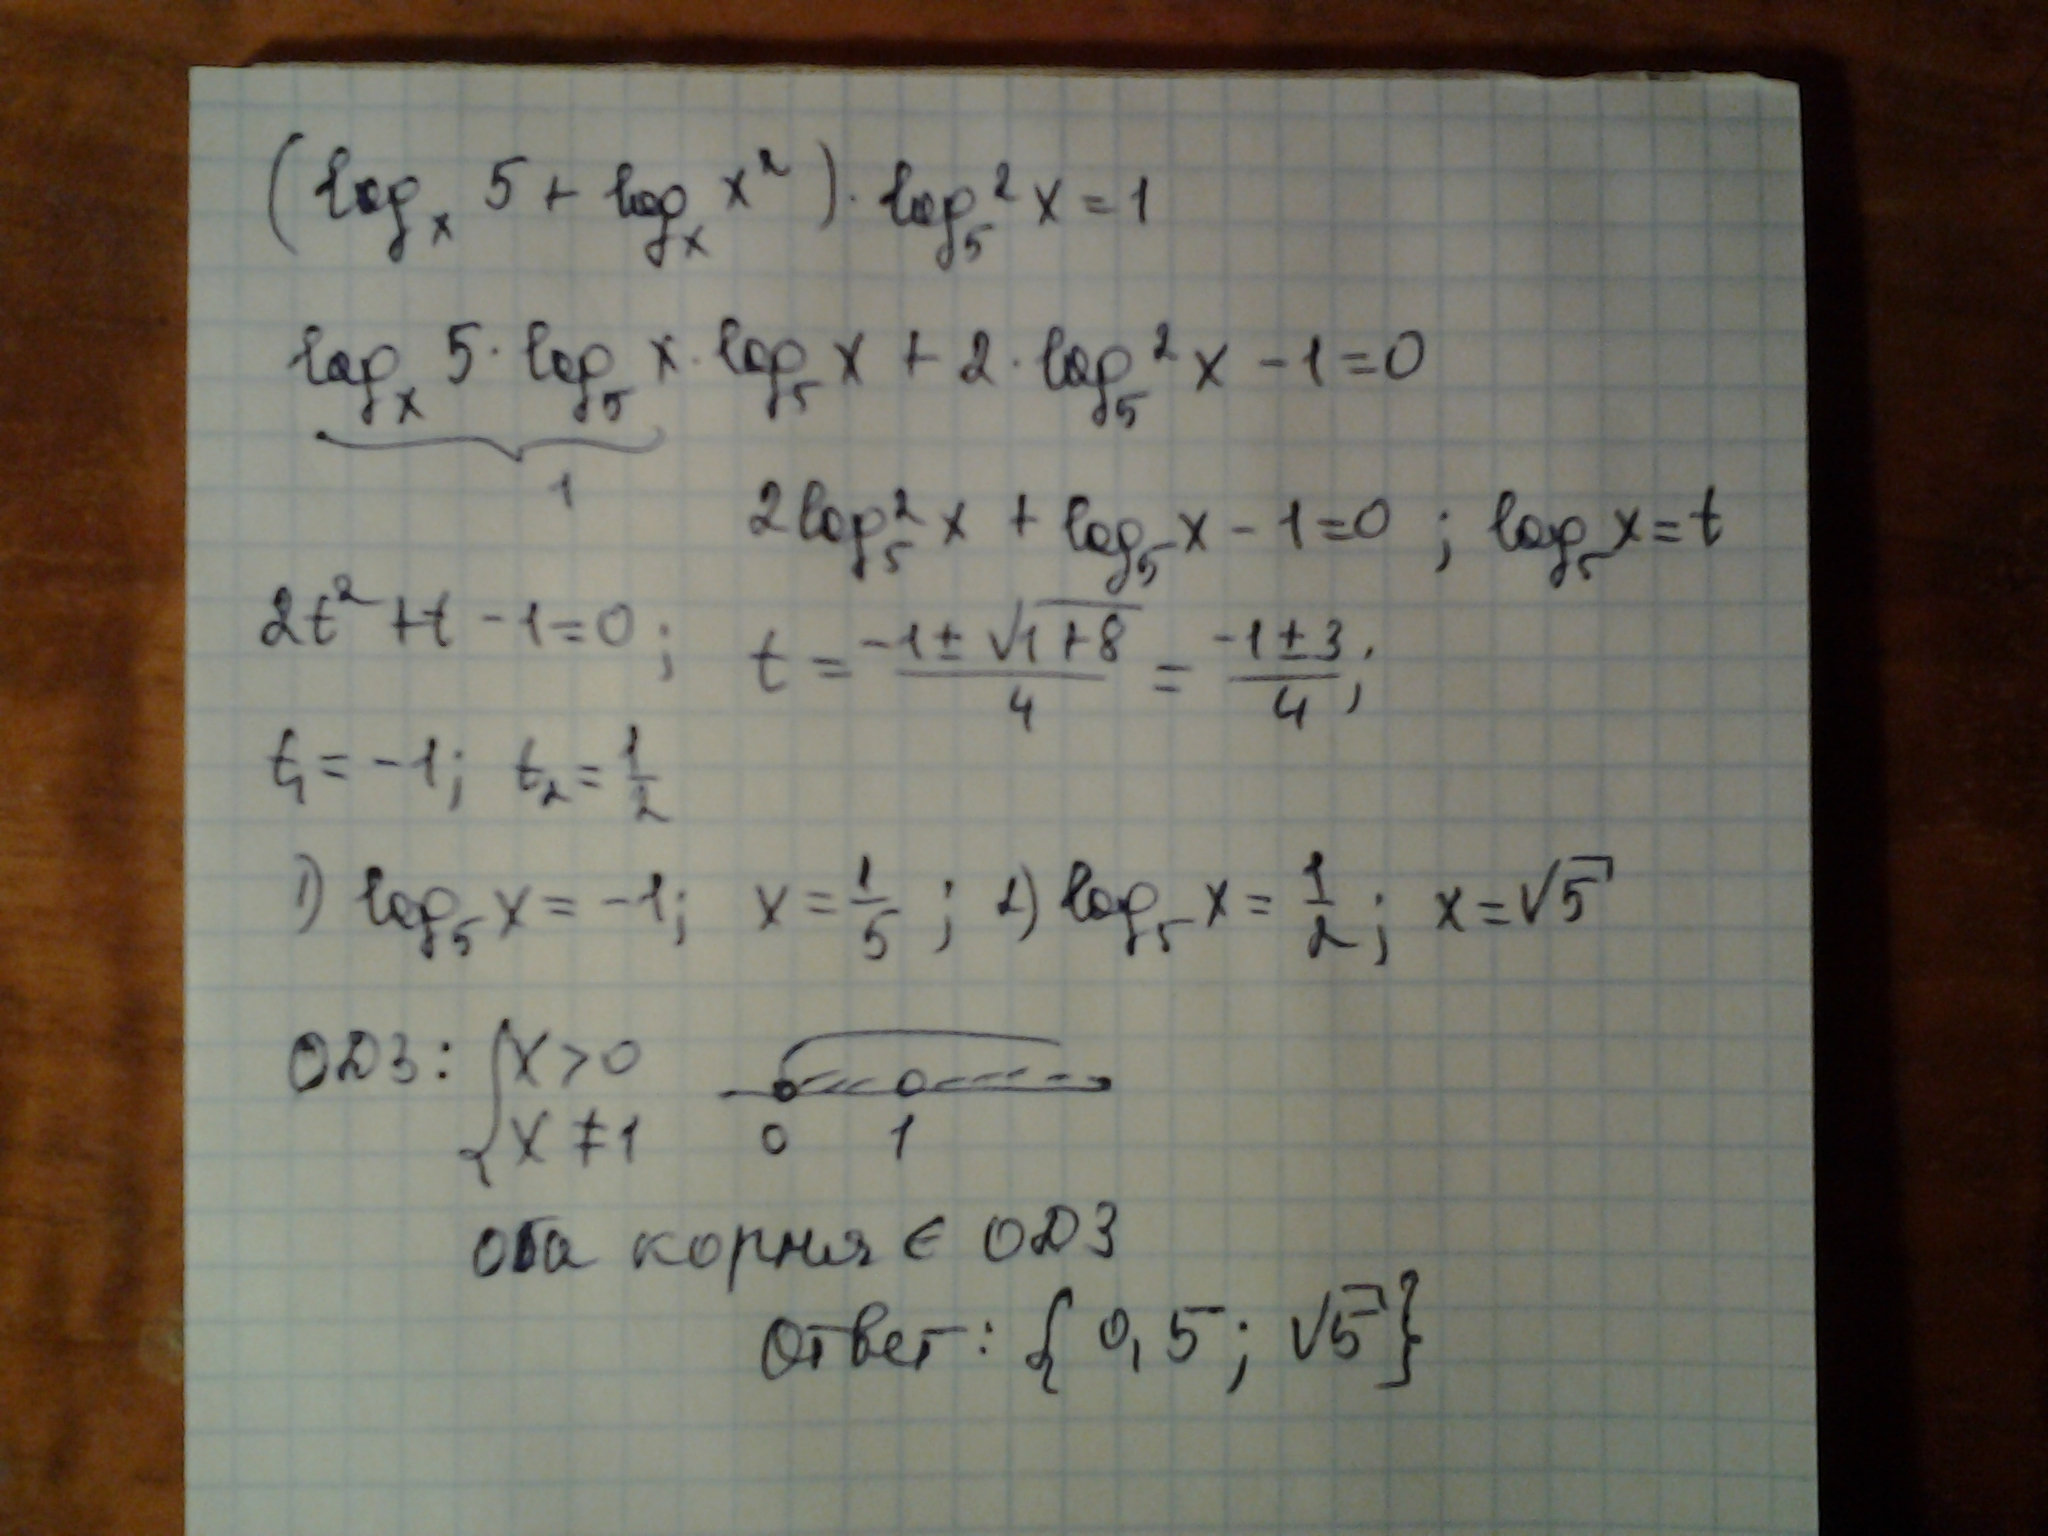 (logₓ 5 + logₓ x²) · log₅² x = 1
logₓ 5 · log₅ x · log₅ x + 2 · log₅² x - 1 = 0
1
2 log₅² x + log₅ x - 1 = 0 ; log₅ x = t
2t² + t - 1 = 0 ; t = (-1 ± √(1+8))/4 = (-1 ± 3)/4 ;
t₁ = -1 ; t₂ = 1/2
1) log₅ x = -1 ; x = 1/5 ; 2) log₅ x = 1/2 ; x = √5
ОДЗ : { x > 0
x ≠ 1
0 1
оба корня ∈ ОДЗ
Ответ : { 0,5 ; √5 }